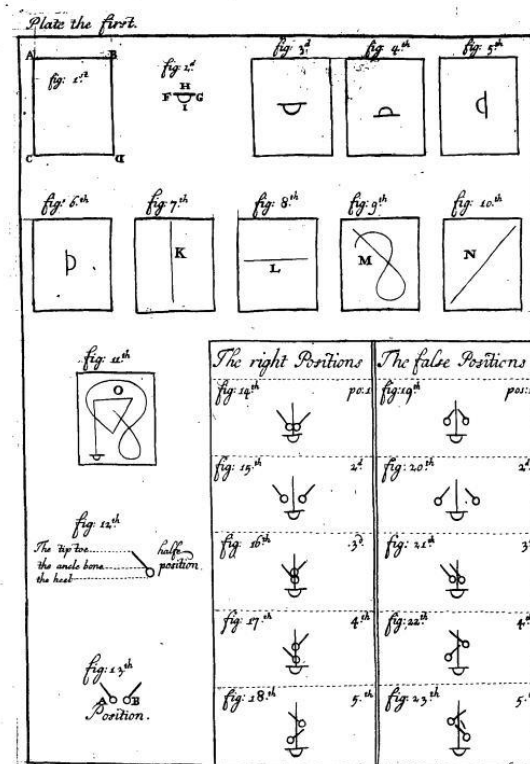 Plate the first.
A B
fig: 1.st
C D
fig: 2.d
H
F G
I
fig: 3.d
fig: 4.th
fig: 5.th
fig: 6.th
fig: 7.th
K
fig: 8.th
L
fig: 9.th
M
fig: 10.th
N
fig: 11.th
O
fig: 12.th
The tip toe
the ancle bone
the heel
halfe
position.
fig: 13.th
A B
Position.
The right Positions
fig: 14.th po:1
fig: 15.th 2.d
fig: 16.th 3.d
fig: 17.th 4.th
fig: 18.th 5.th
The false Positions
fig: 19.th pos:
fig: 20.th 2.d
fig: 21.th 3
fig: 22.th 4.t
fig: 23.th 5.